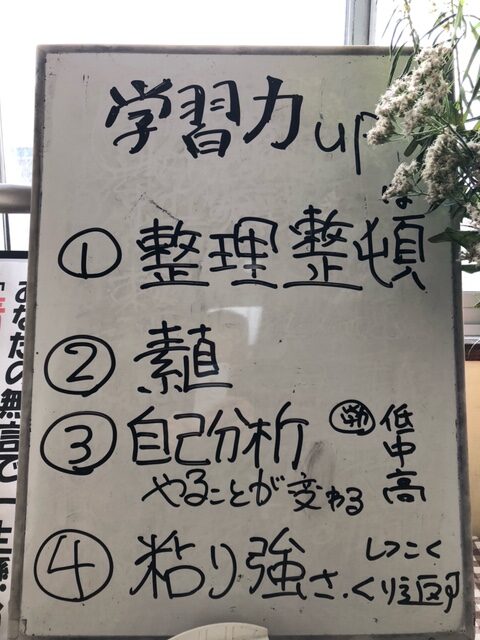 学習力up
は
①整理整頓
②素直
③自己分析
低中高
やることが変わる
④粘り強さ.
しつこく
くり返す
あなたの無言で